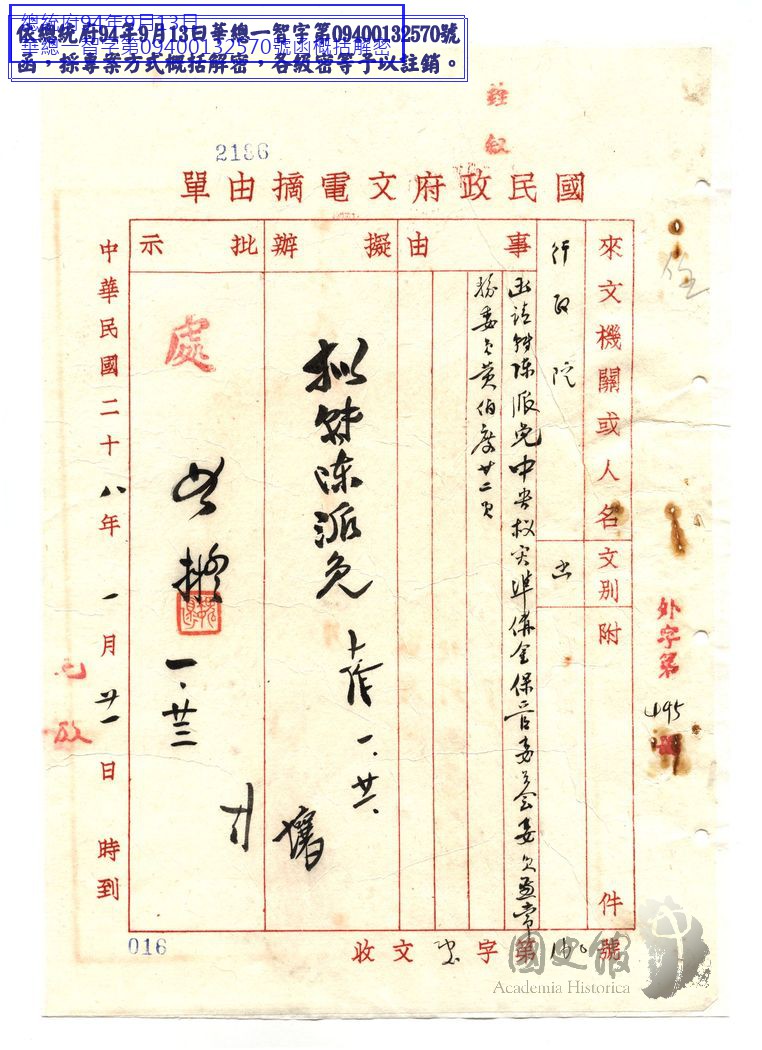 總統府94年9月13日
華總一智字第09400132570號函概括解密
依總統府94年9月13日華總一智字第09400132570號
函，採專案方式概括解密，各級密等予以註銷。
銓敘
2186
國民政府文電摘由單
來文機關或人名
行政院
文別
函
附件
事由
函請轉陳派免中央儲準備金保管委員會委員並常
務委員黃伯度廿二員
擬辦
拟轉陳派免
一、廿一、
批示
處
一、廿三
中華民國二十八年一月廿一日 時到
外字第
495
號
收文字第 號
016
國史館
Academia Historica